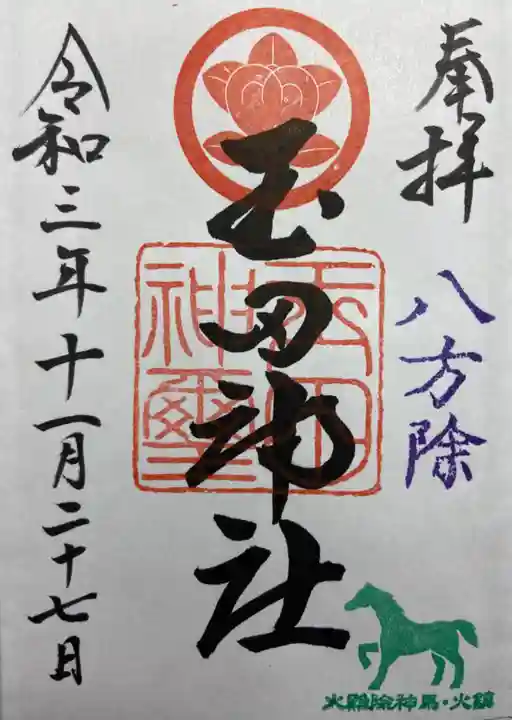 奉拝
八方除
玉田神社
玉田
神璽
令和三年十一月二十七日
水難除神馬・火鎮